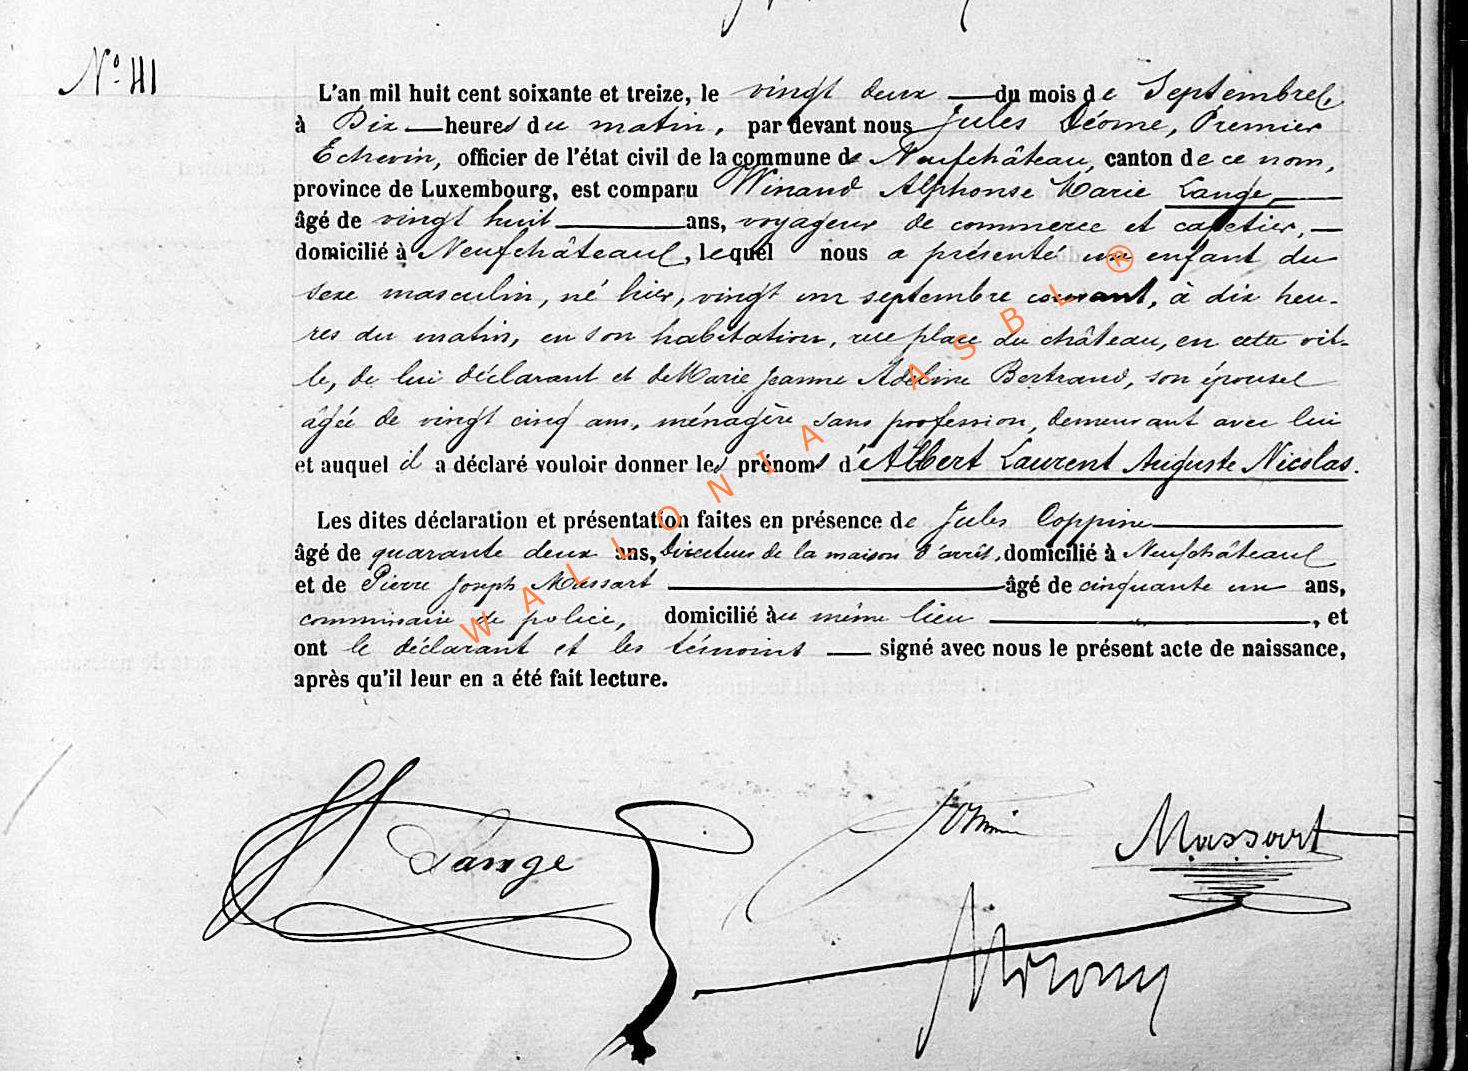 N° 41
L'an mil huit cent soixante et treize, le vingt deux du mois de Septembre,
à Dix heures du matin, par devant nous Jules Déome, Premier
Echevin, officier de l'état civil de la commune de Neufchâteau, canton de ce nom,
province de Luxembourg, est comparu Winand Alphonse Marie Lange,
âgé de vingt huit ans, voyageur de commerce et cafetier,
domicilié à Neufchâteau, lequel nous a présenté un enfant du
sexe masculin, né hier, vingt un septembre courant, à dix heu-
res du matin, en son habitation, rue place du château, en cette vil-
le, de lui déclarant et de Marie Jeanne Adeline Bertrand, son épouse
âgée de vingt cinq ans, ménagère sans profession, demeurant avec lui
et auquel il a déclaré vouloir donner les prénoms d'Albert Laurent Auguste Nicolas.
Les dites déclaration et présentation faites en présence de Jules Coppine
âgé de quarante deux ans, Directeur de la maison d'arrêt, domicilié à Neufchâteau
et de Pierre Joseph Massart âgé de cinquante un ans,
commissaire de police, domicilié au même lieu, et
ont le déclarant et les témoins signé avec nous le présent acte de naissance,
après qu'il leur en a été fait lecture.
Lange
Massart
WALLONIA ASBL ®